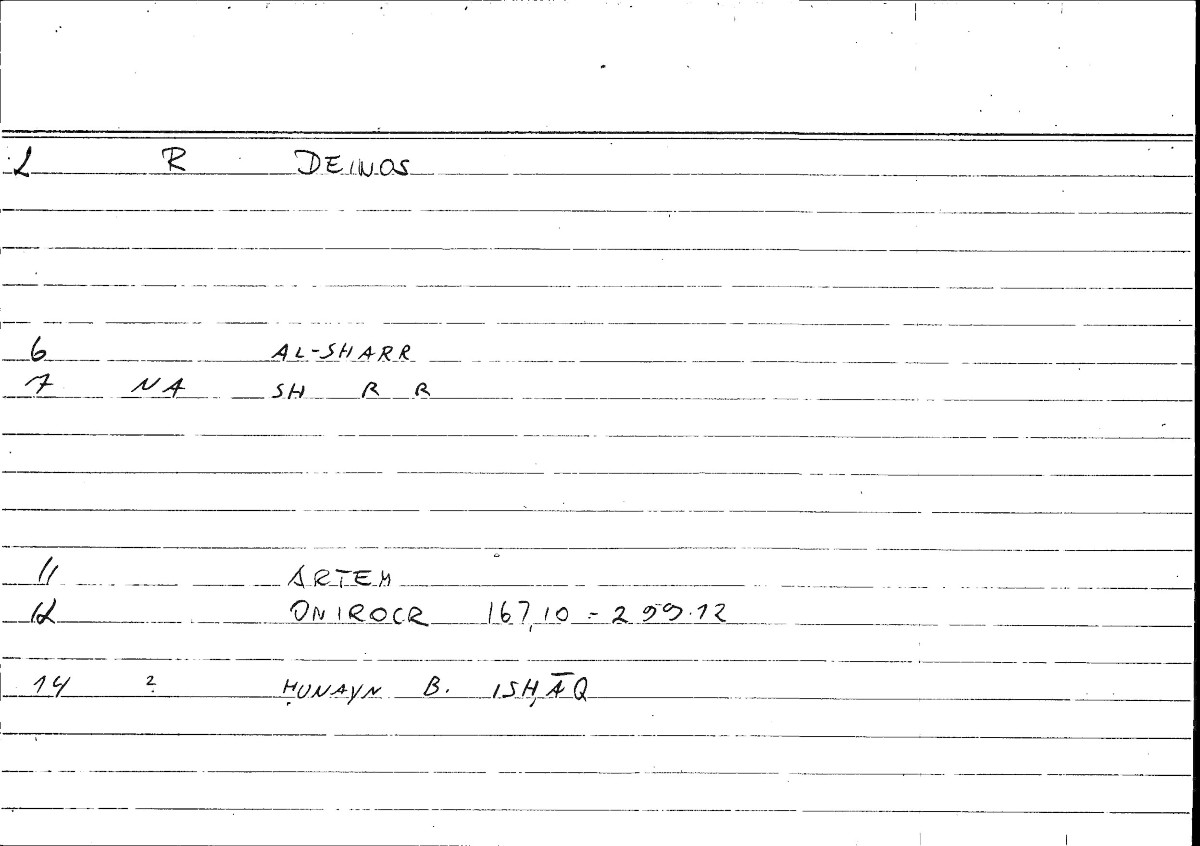 2 R DEINOS
6 AL-SHARR
7 NA SH R R
11 ARTEM
12 ONIROCR 167,10 = 299.12
14 2 ḤUNAYN B. ISḤĀQ